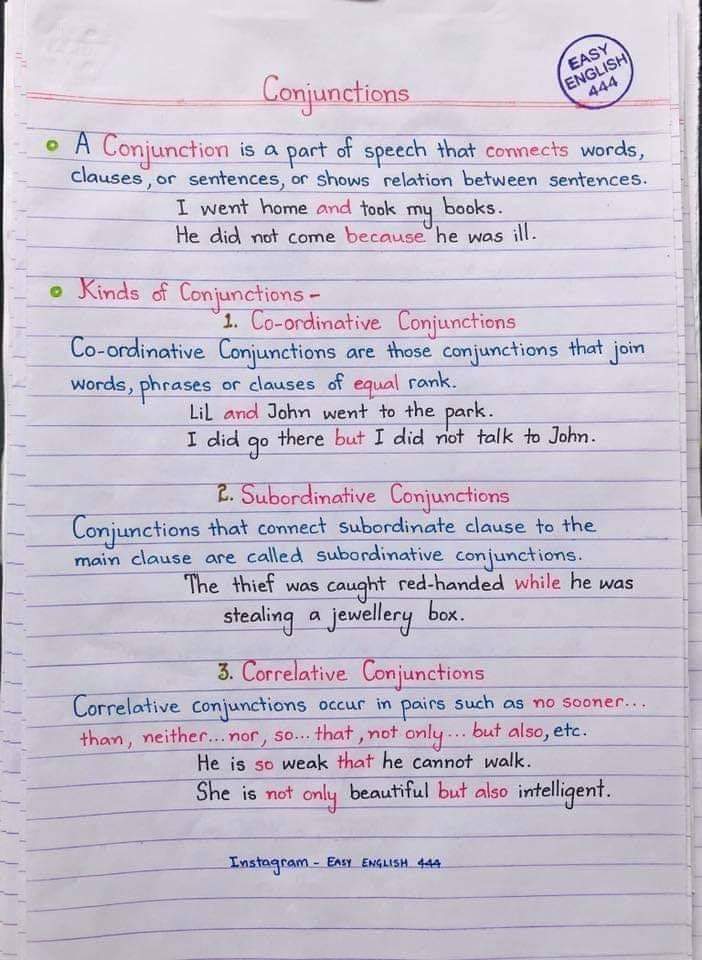 EASY
ENGLISH
444
Conjunctions
A Conjunction is a part of speech that connects words,
clauses, or sentences, or shows relation between sentences.
I went home and took my books.
He did not come because he was ill.
Kinds of Conjunctions-
1. Co-ordinative Conjunctions
Co-ordinative Conjunctions are those conjunctions that join
words, phrases or clauses of equal rank.
LiL and John went to the park.
I did go there but I did not talk to John.
2. Subordinative Conjunctions
Conjunctions that connect subordinate clause to the
main clause are called subordinative conjunctions.
The thief was caught red-handed while he was
stealing a jewellery box.
3. Correlative Conjunctions
Correlative conjunctions occur in pairs such as no sooner...
than, neither...nor, so...that, not only... but also, etc.
He is so weak that he cannot walk.
She is not only beautiful but also intelligent.
Instagram - EASY ENGLISH 444